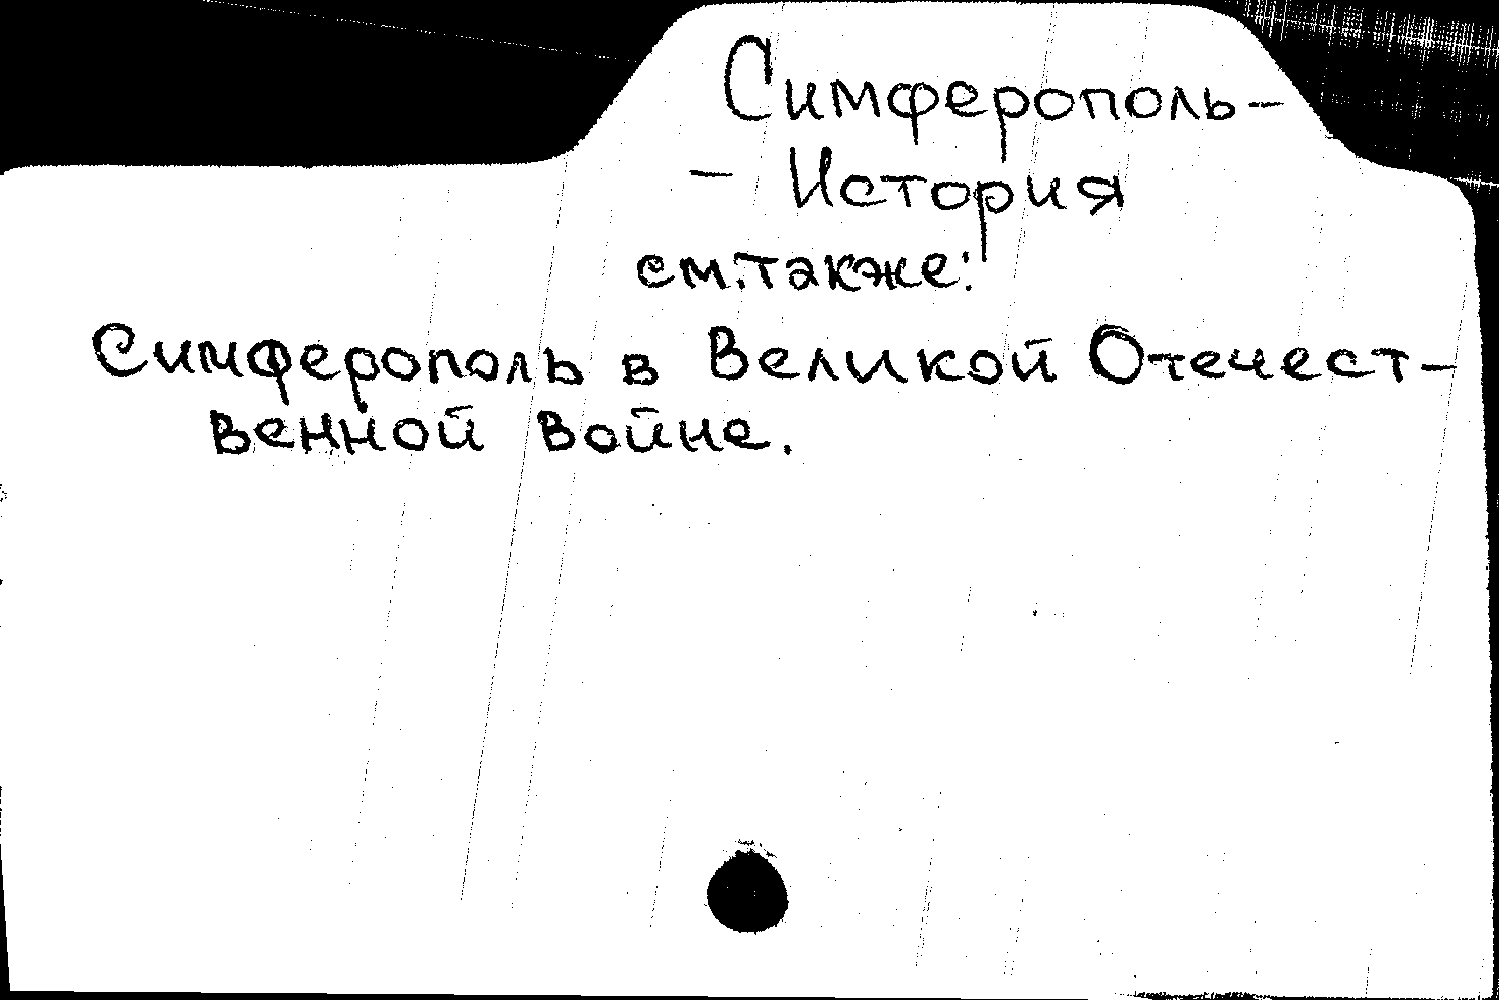 Симферополь-
- История
см.также:
Симферополь в Великой Отечест-
венной войне.